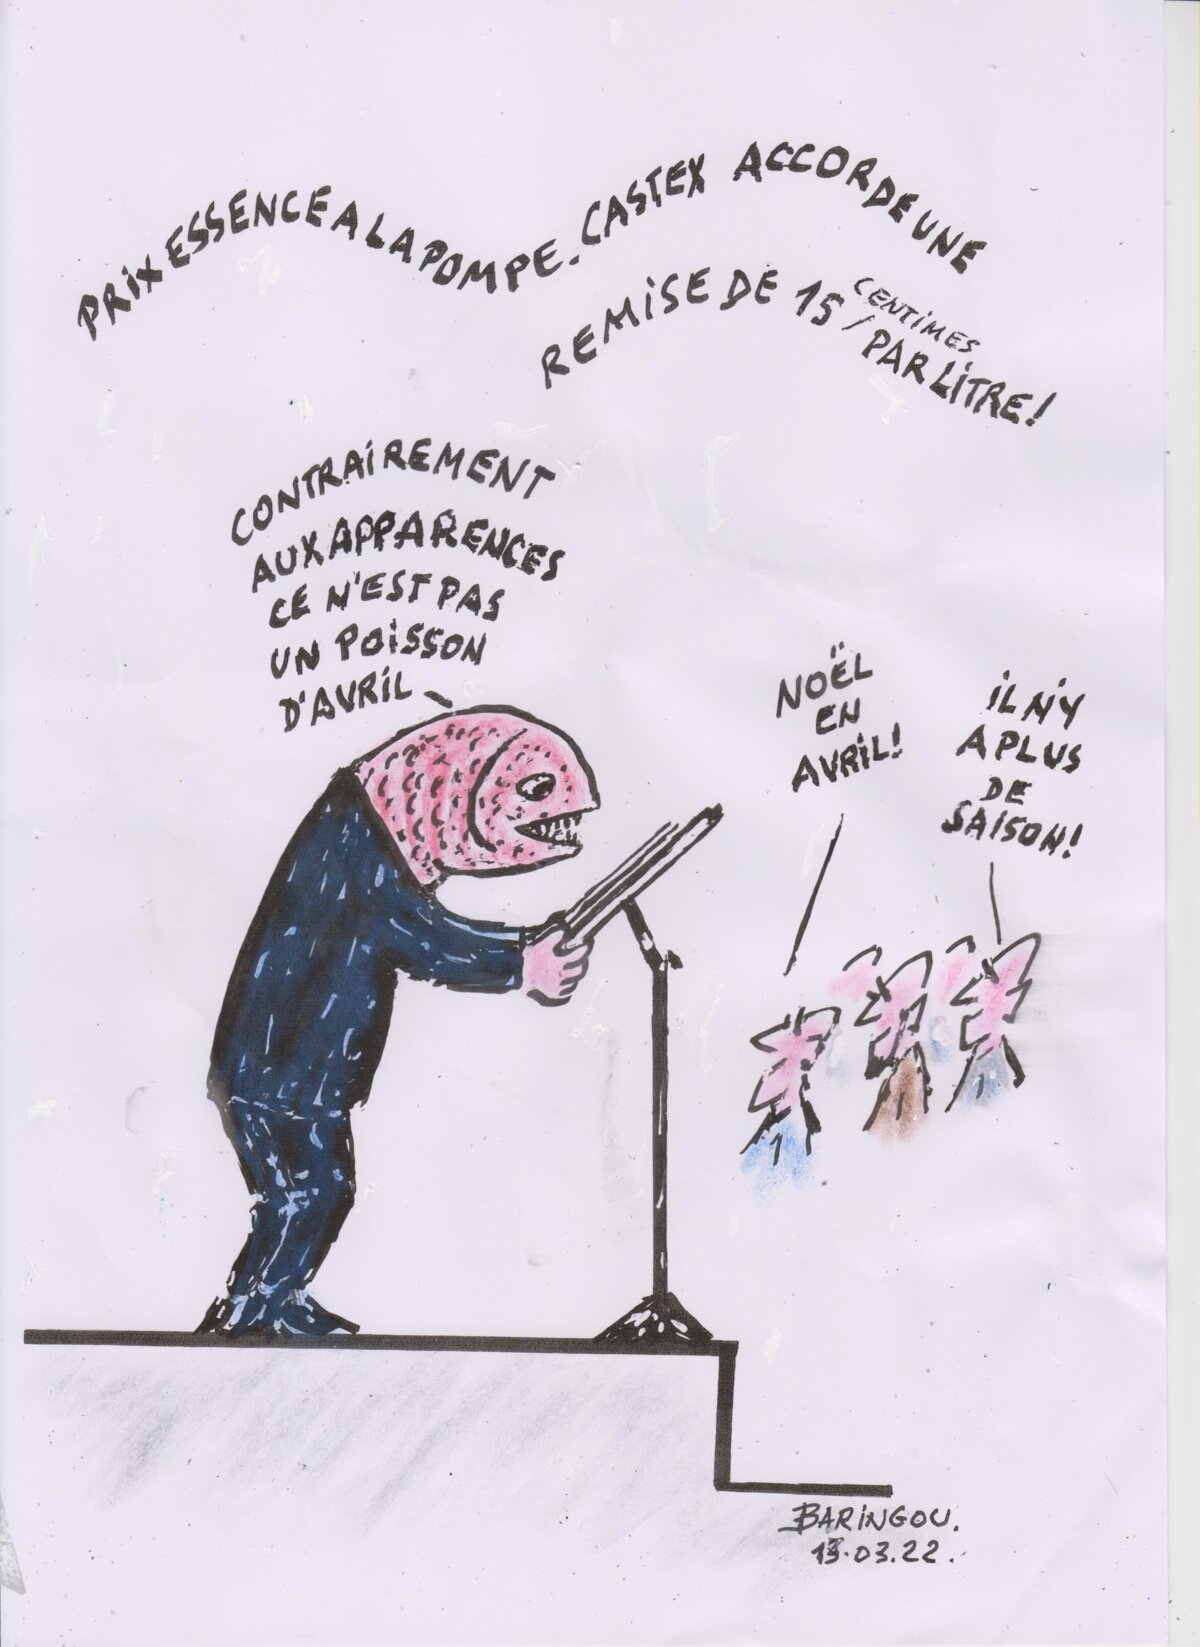 PRIX ESSENCE A LA POMPE. CASTEX ACCORDE UNE
REMISE DE 15 CENTIMES / PAR LITRE!
CONTRAIREMENT
AUX APPARENCES
CE N'EST PAS
UN POISSON
D'AVRIL
NOËL
EN
AVRIL!
IL N'Y
A PLUS
DE
SAISON!
BARINGOU.
13.03.22.